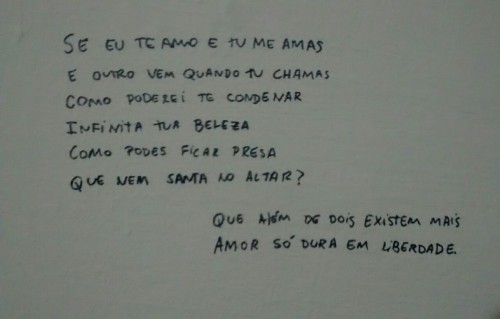 SE EU TE AMO E TU ME AMAS
E OUTRO VEM QUANDO TU CHAMAS
COMO PODEREI TE CONDENAR
INFINITA TUA BELEZA
COMO PODES FICAR PRESA
QUE NEM SANTA NO ALTAR?
QUE ALÉM DE DOIS EXISTEM MAIS
AMOR SÓ DURA EM LIBERDADE.